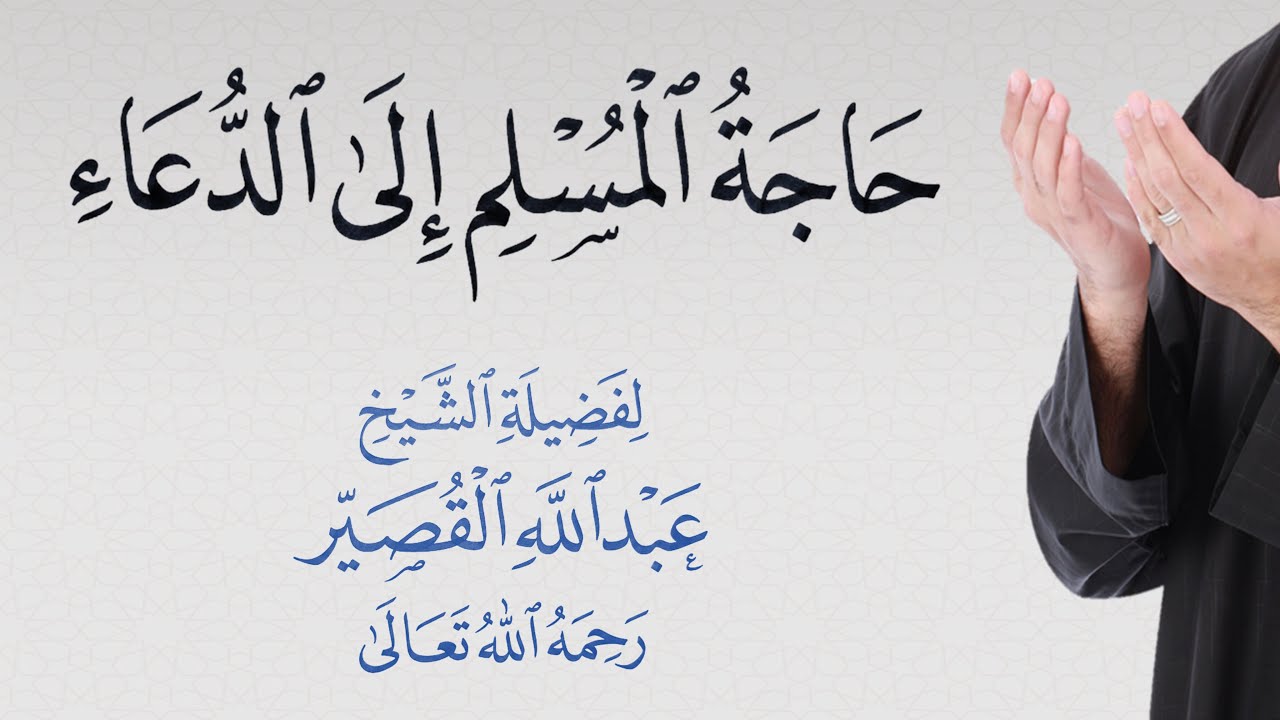 حَاجَةُ ٱلْمُسْلِمِ إِلَىٰ ٱلدُّعَاءِ
لِفَضِيلَةِ ٱلشَّيْخِ
عَبْدِ ٱللَّهِ ٱلْقُصَيِّر
رَحِمَهُ ٱللهُ تَعَالَىٰ